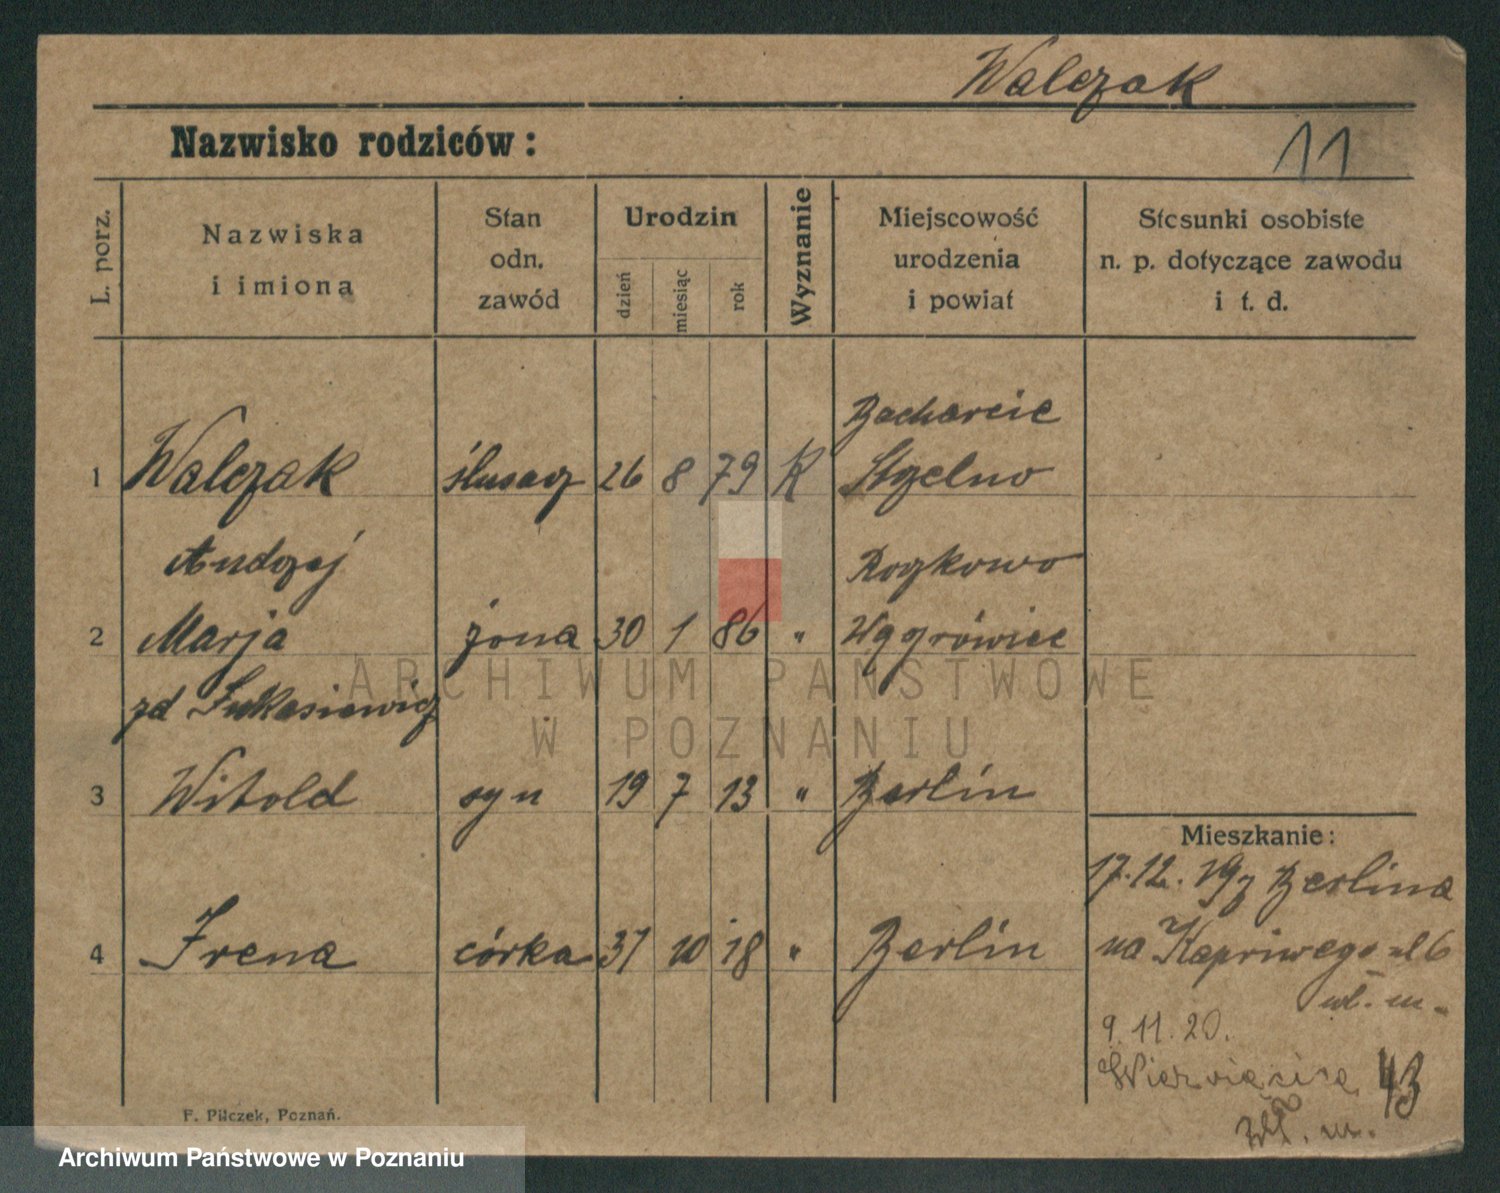 Walczak
Nazwisko rodziców:
11
L. porz.
Nazwiska
i imiona
Stan
odn.
zawód
Urodzin
dzień
miesiąc
rok
Wyznanie
Miejscowość
urodzenia
i powiat
Stosunki osobiste
n. p. dotyczące zawodu
i t. d.
Zacharcie
1 Walczak ślusarz 26 8 79 K Strzelno
Andrzej Roszkowo
2 Marja żona 30 1 86 " Wągrówiec
zd Łukasiewicz
3 Witold syn 19 7 13 " Berlin
Mieszkanie:
17.12.19 z Berlina
4 Irena córka 31 10 18 " Berlin
na Kapriwego ul 6
wł. m.
9.11.20.
43
m.
F. Pilczek, Poznań.
ARCHIWUM PAŃSTWOWE
W POZNANIU
Archiwum Państwowe w Poznaniu